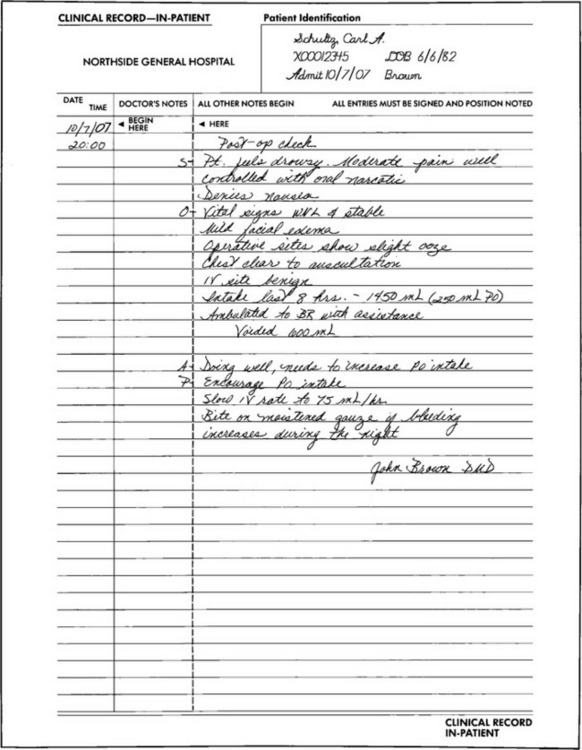 CLINICAL RECORD—IN-PATIENT
Patient Identification
NORTHSIDE GENERAL HOSPITAL
Schultz, Carl A.
X00012345 DOB 6/6/82
Admit 10/7/07 Brown
DATE TIME DOCTOR'S NOTES ALL OTHER NOTES BEGIN ALL ENTRIES MUST BE SIGNED AND POSITION NOTED
10/7/07 ◄ BEGIN HERE ◄ HERE
20:00 Post-op check
S- Pt. feels drowsy. Moderate pain well
controlled with oral narcotic
Denies nausea
O- Vital signs WNL & stable
Mild facial edema
Operative sites show slight ooze
Chest clear to auscultation
IV site benign
Intake last 8 hrs. - 1450 mL (250 mL PO)
Ambulated to BR with assistance
Voided 600 mL
A- Doing well, needs to increase PO intake
P- Encourage PO intake
Slow IV rate to 75 mL/hr
Bite on moistened gauze if bleeding
increases during the night
John Brown DMD
CLINICAL RECORD
IN-PATIENT